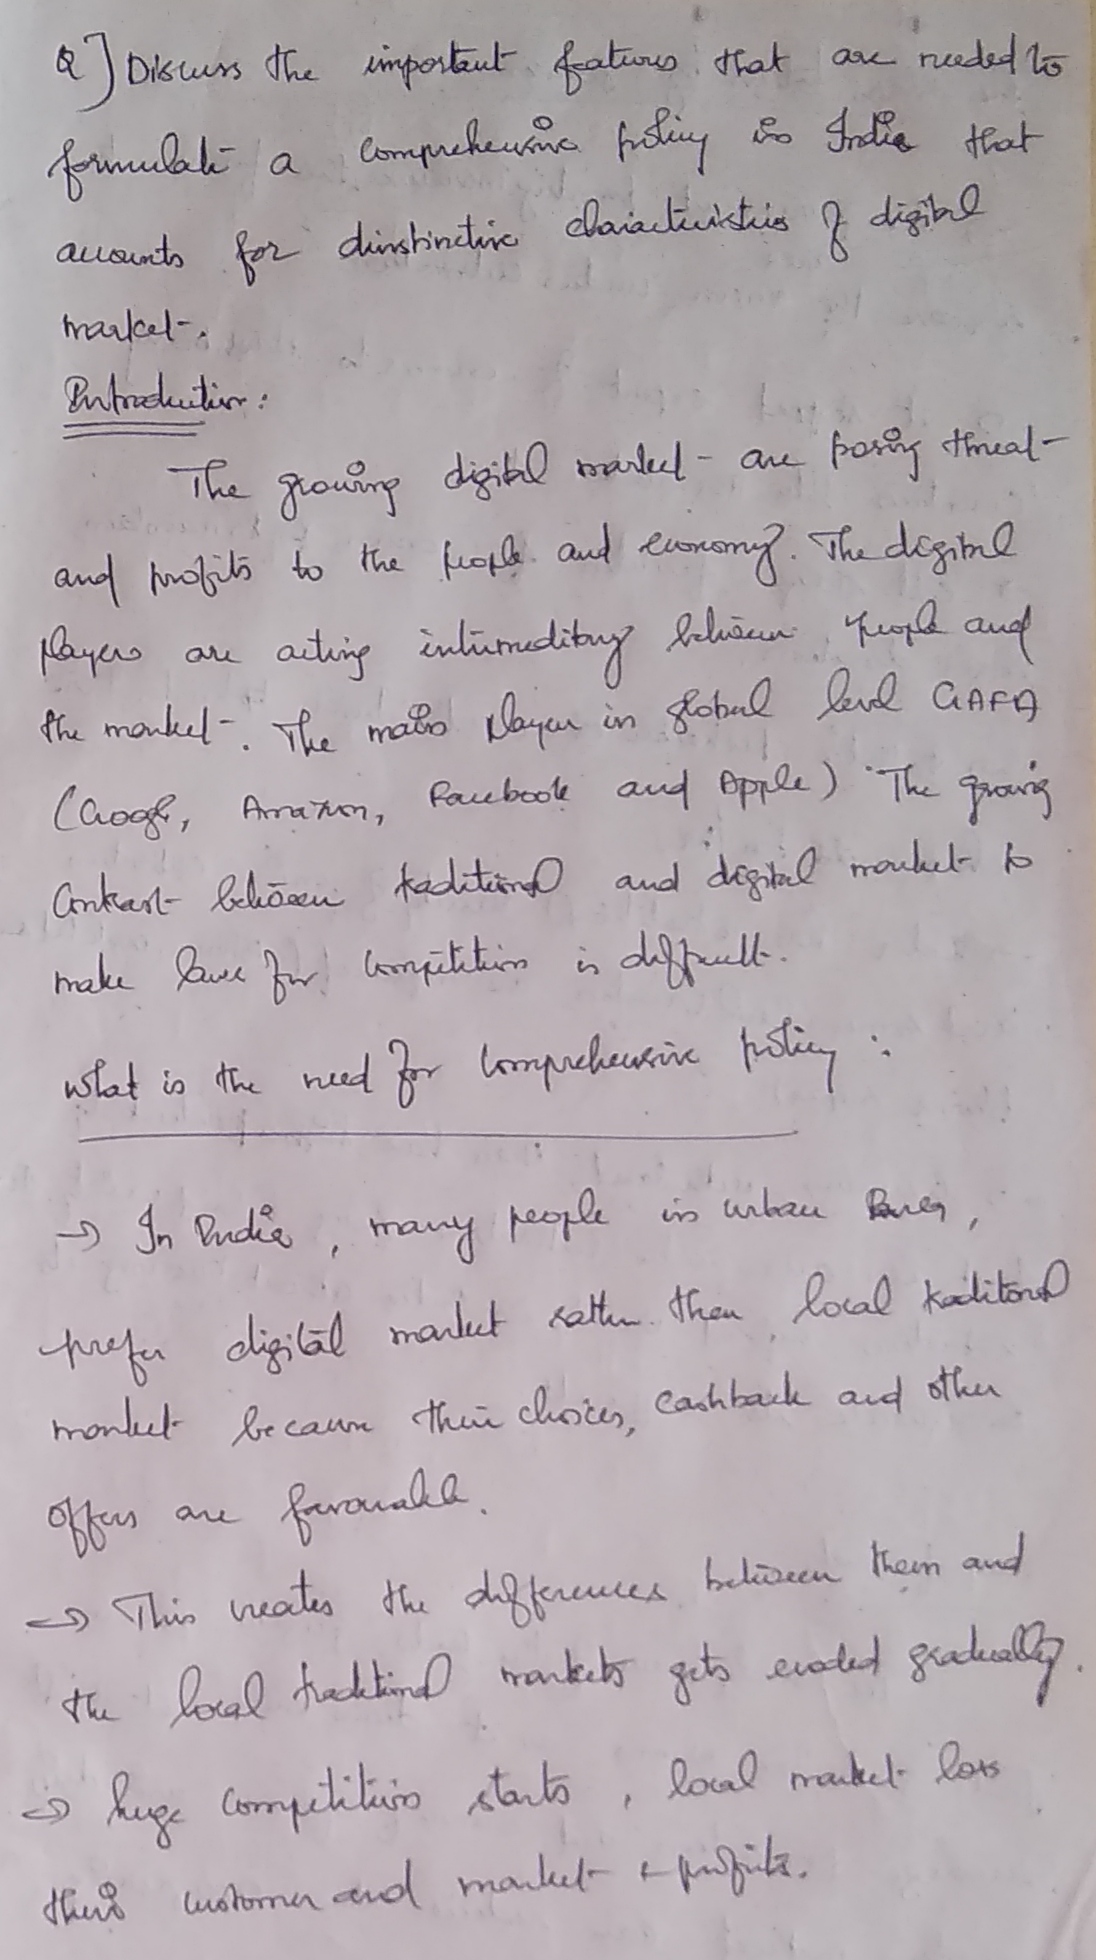 Q] Discuss the important features that are needed to
formulate a comprehensive policy in India that
accounts for dinstinctive characteristics of digital
market.
Introduction:
The growing digital market are posing threat
and profits to the people and economy. The digital
players are acting intermeditory between people and
the market. The main player in global level GAFA
(Google, Amazon, Facebook and Apple) The growing
contrast between traditional and digital market to
make laws for competition is difficult.
What is the need for comprehensive policy :
→ In India, many people in urban
prefer digital market rather then local traditional
market because their choices, cashback and other
offers are favourable.
→ This creates the differences between them and
the local traditional markets gets eroded gradually.
→ huge competition starts, local market loss
their customer and market & profits.